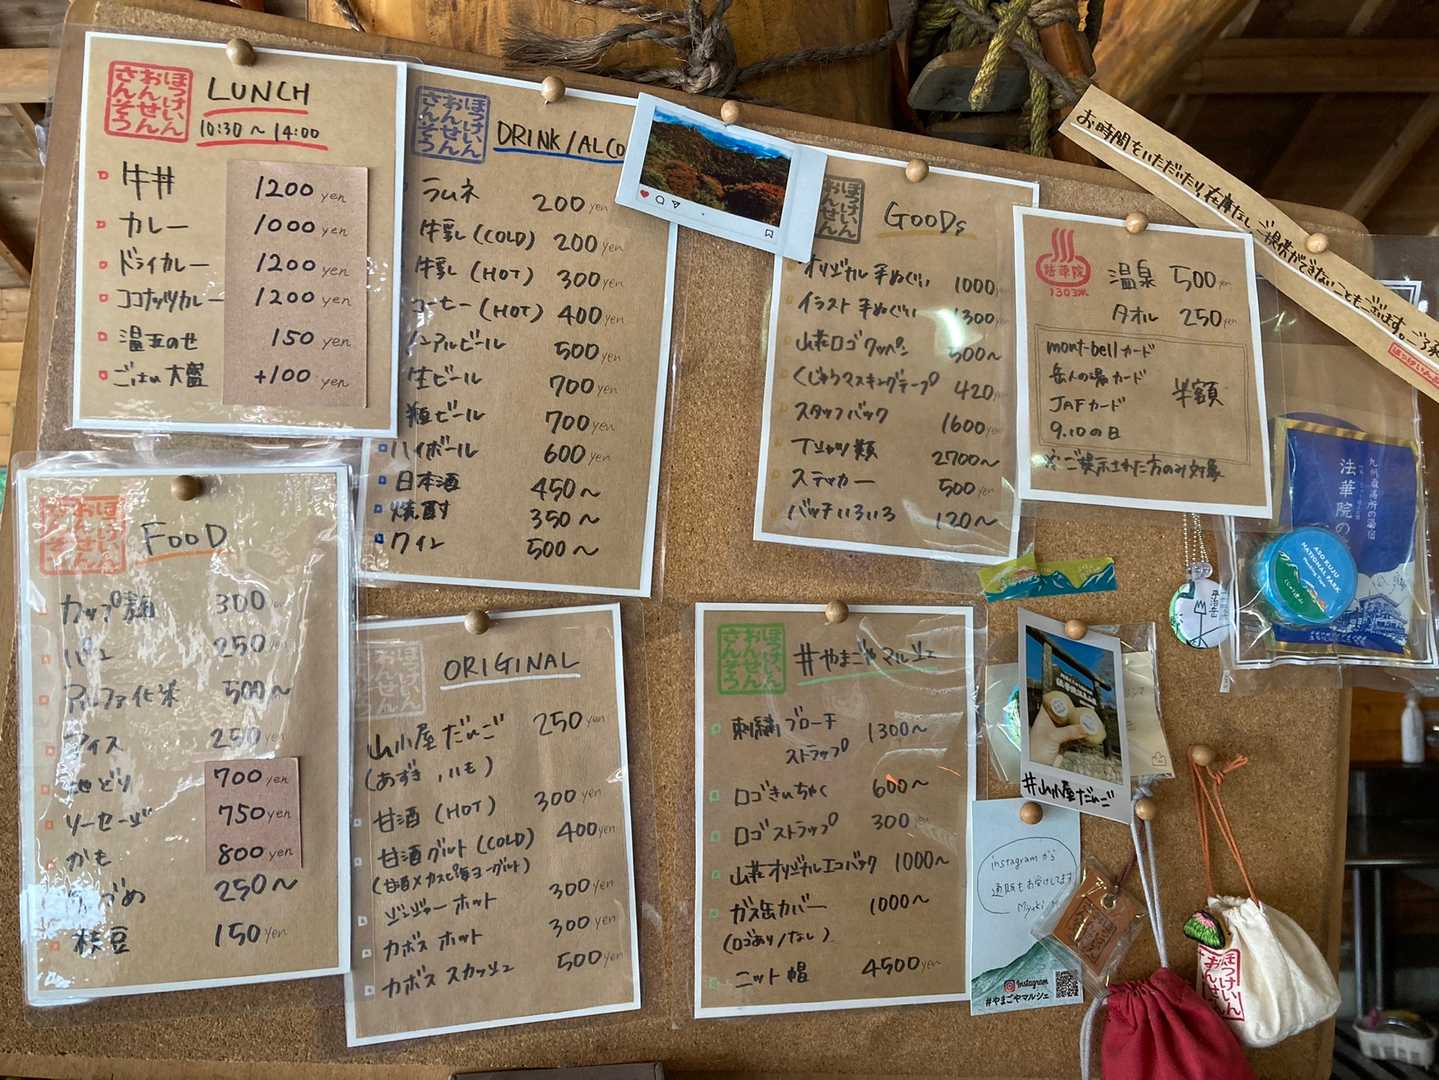 ほっけいん
おんせん
さんそう
LUNCH
10:30 〜 14:00
牛丼 1200 yen
カレー 1000 yen
ドライカレー 1200 yen
ココナッツカレー 1200 yen
温玉のせ 150 yen
ごはん大盛 +100 yen
ほっけいん
おんせん
さんそう
DRINK/ALCO
ラムネ 200 yen
牛乳 (COLD) 200 yen
牛乳 (HOT) 300 yen
コーヒー (HOT) 400 yen
ノンアルビール 500 yen
生ビール 700 yen
瓶ビール 700 yen
ハイボール 600 yen
日本酒 450〜
焼酎 350〜
ワイン 500〜
ほっけいん
おんせん
さんそう
GOODs
オリジナル手ぬぐい 1000 yen
イラスト手ぬぐい 1300 yen
山荘ロゴワッペン 500〜
くじゅうマスキングテープ 420 yen
スタッフバック 1600 yen
Tシャツ類 2700〜
ステッカー 500 yen
バッチいろいろ 120〜
法華院
1303m
温泉 500 yen
タオル 250 yen
mont-bellカード
岳人の湯カード
JAFカード
9.10の日
半額
※ご提示された方のみ対象
お時間をいただいたり、在庫なしご提供ができないこともございます。ご了承
ほっけいん
おんせん
さんそう
FOOD
カップ麺 300 yen
パン 250 yen
アルファ化米 500〜
アイス 250 yen
地どり 700 yen
ソーセージ 750 yen
かも 800 yen
250〜
枝豆 150 yen
ほっけいん
おんせん
さんそう
ORIGINAL
山小屋だんご 250 yen
(あずき , いも)
甘酒 (HOT) 300 yen
甘酒グルト (COLD) 400 yen
(甘酒×カスピ海ヨーグルト)
ジンジャーホット 300 yen
カボスホット 300 yen
カボススカッシュ 500 yen
ほっけいん
おんせん
さんそう
#やまごやマルシェ
刺繍ブローチ 1300〜
ストラップ
ロゴきんちゃく 600〜
ロゴストラップ 300 yen
山荘オリジナルエコバック 1000〜
ガス缶カバー 1000〜
(ロゴあり/なし)
ニット帽 4500 yen
#山小屋だんご
instagramから
通販もお受けしてます
Miyuki
Instagram
#やまごやマルシェ
九州最高所の湯宿
法華院の
ASO KUJU
NATIONAL PARK
Masking Tape
ほっけいん
おんせん
さんそう